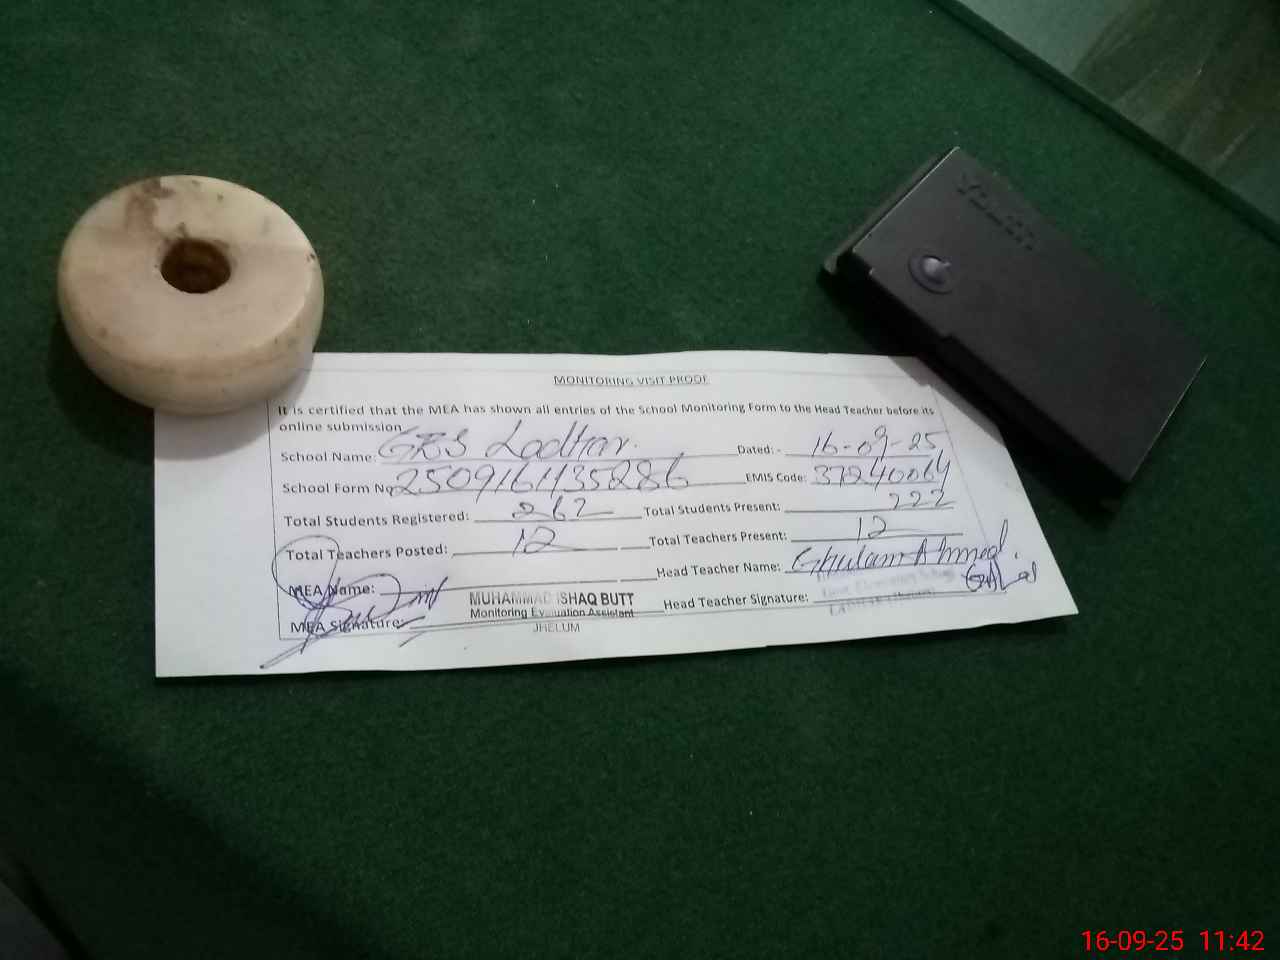 MONITORING VISIT PROOF
It is certified that the MEA has shown all entries of the School Monitoring Form to the Head Teacher before its
online submission
School Name: GES Ladhar. Dated:- 16-09-25
School Form No 2509161135286 EMIS Code: 37240064
Total Students Registered: 262 Total Students Present: 222
Total Teachers Posted: 12 Total Teachers Present: 12
MEA Name: Head Teacher Name: Ghulam Ahmed.
MUHAMMAD ISHAQ BUTT
Monitoring Evaluation Assistant
JHELUM
MEA Signature: Head Teacher Signature:
16-09-25 11:42